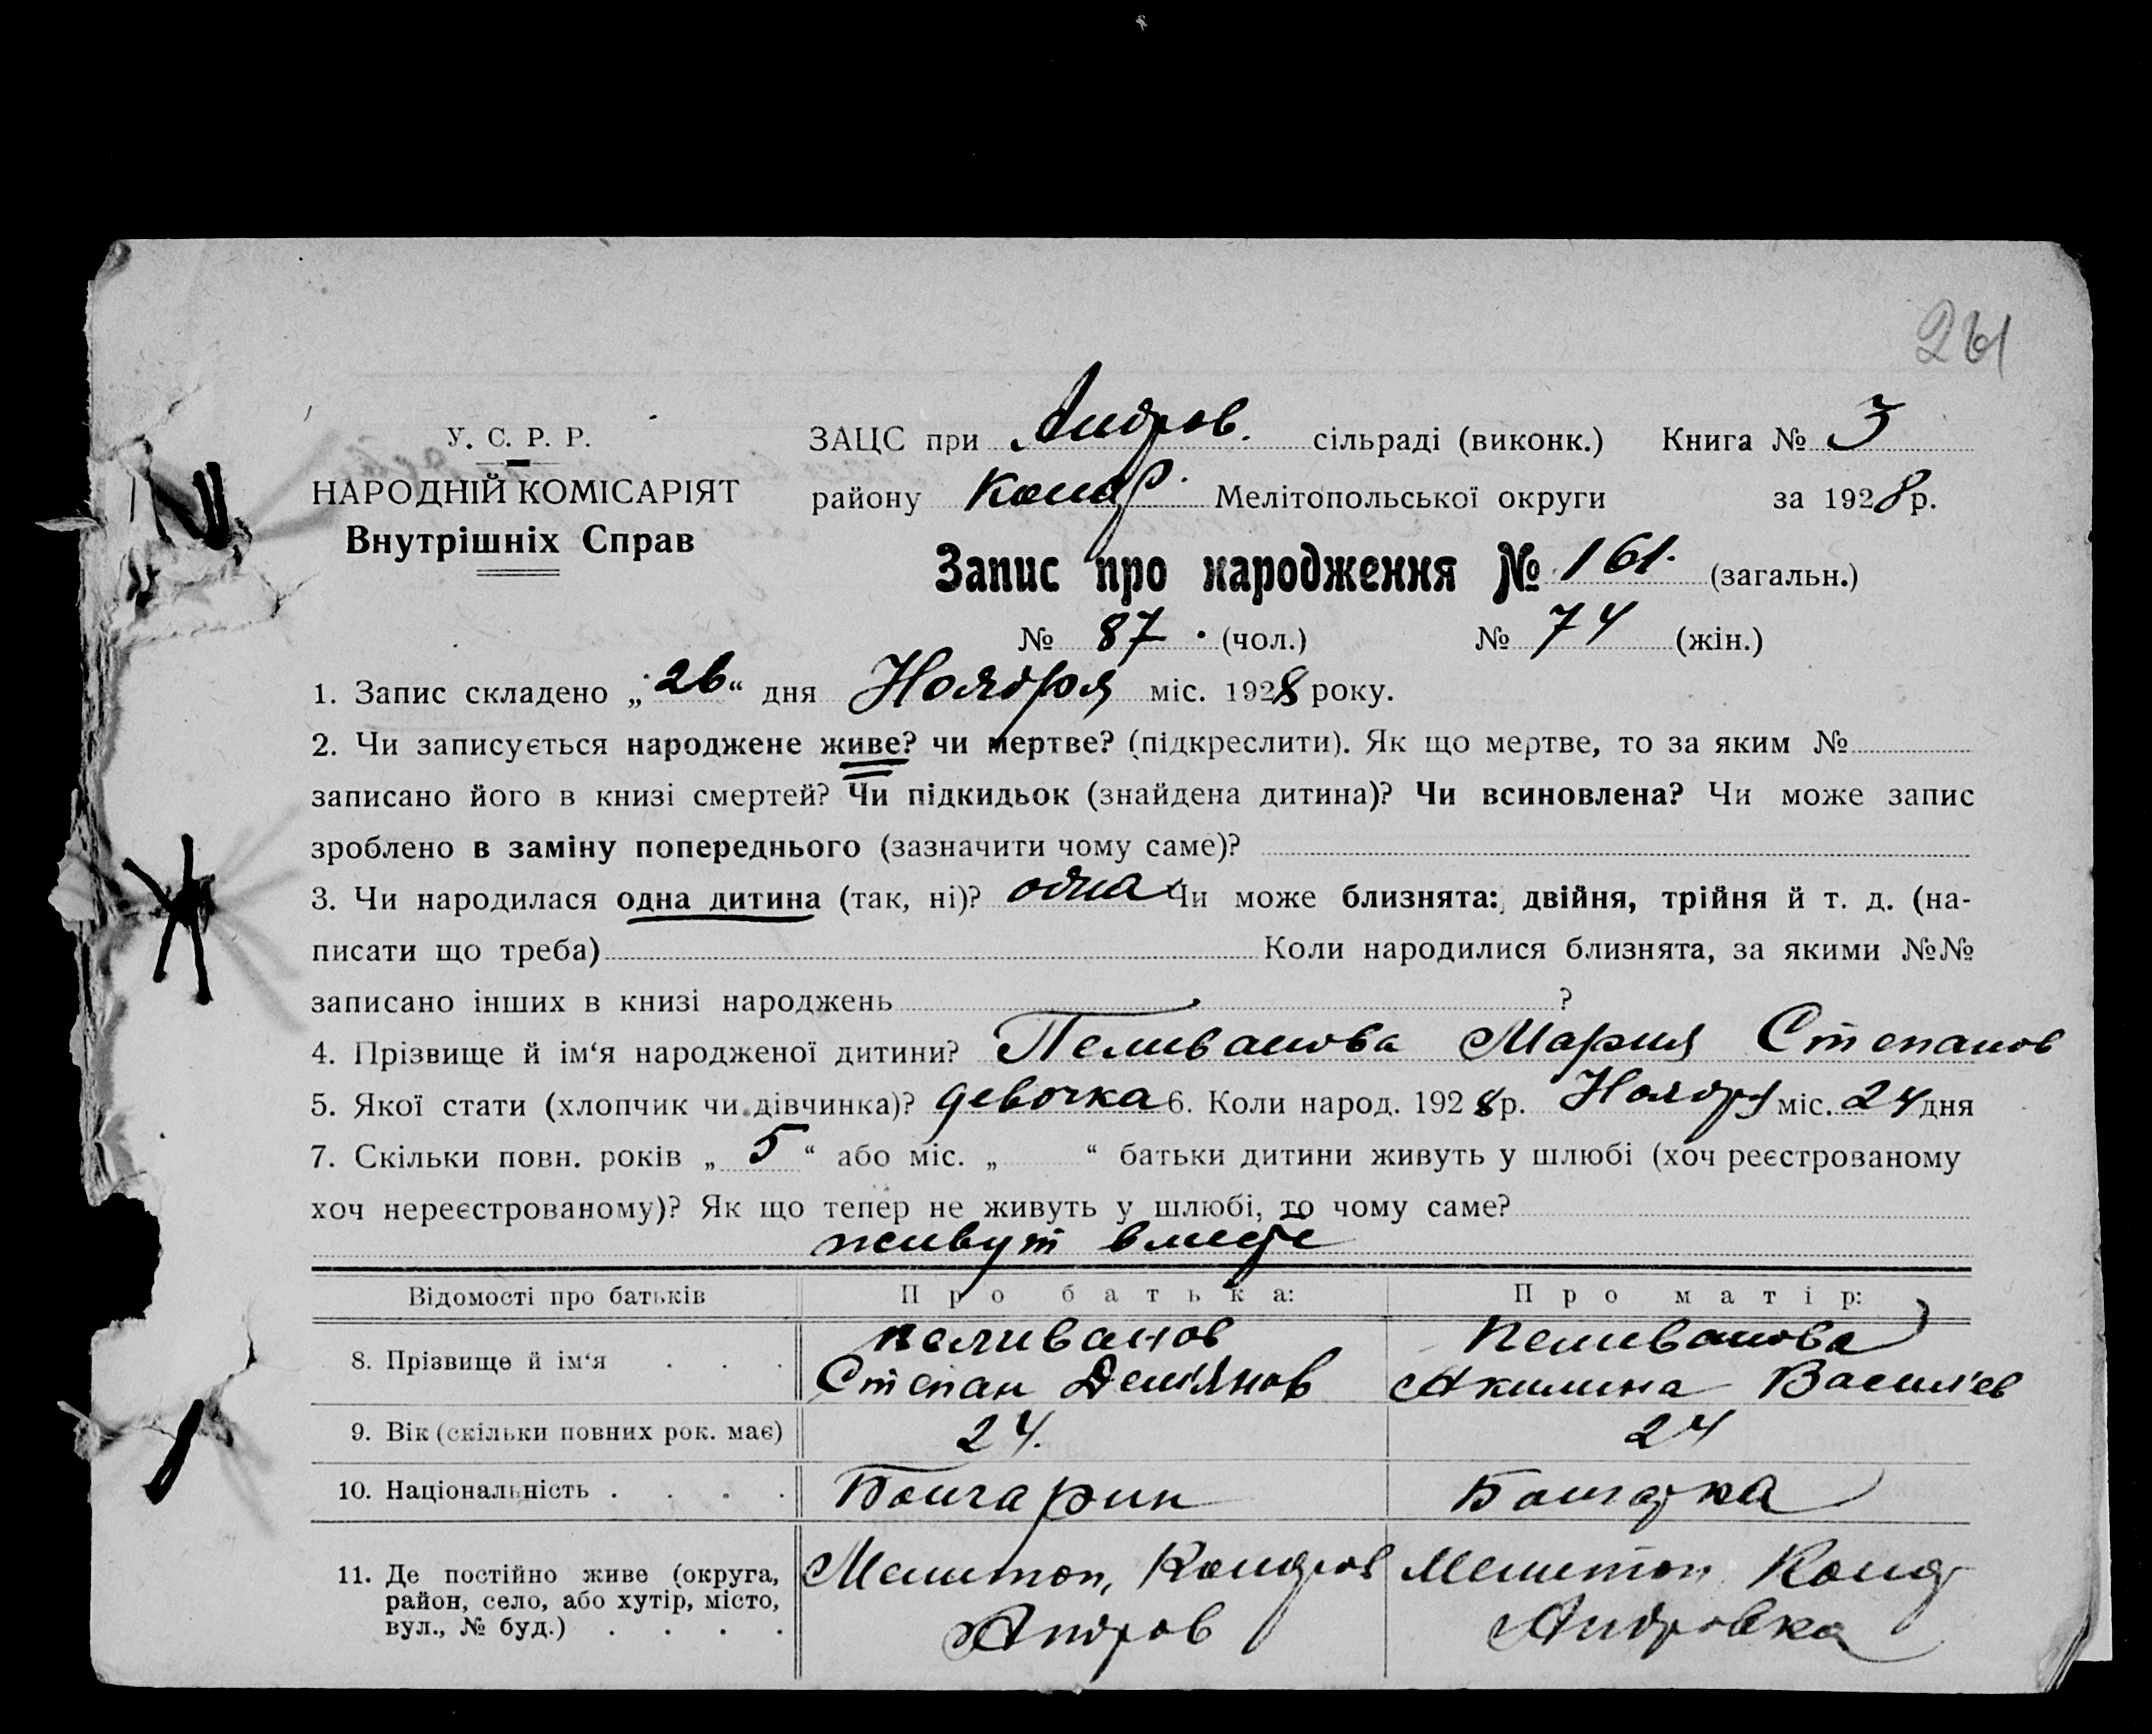 261
У. С. Р. Р.
НАРОДНІЙ КОМІСАРІЯТ
Внутрішніх Справ
ЗАЦС при Андров. сільраді (виконк.) Книга № 3
району Мелітопольської округи за 1928 р.
Запис про народження № 161. (загальн.)
№ 87 (чол.) № 74 (жін.)
1. Запис складено „26“ дня Ноября міс. 1928 року.
2. Чи записується народжене живе? чи мертве? (підкреслити). Як що мертве, то за яким №
записано його в книзі смертей? Чи підкидьок (знайдена дитина)? Чи всиновлена? Чи може запис
зроблено в заміну попереднього (зазначити чому саме)?
3. Чи народилася одна дитина (так, ні)? одна Чи може близнята: двійня, трійня й т. д. (на-
писати що треба) Коли народилися близнята, за якими №№
записано інших в книзі народжень ?
4. Прізвище й ім‘я народженої дитини? Пеливанова Мария Степанов
5. Якої стати (хлопчик чи дівчинка)? девочка 6. Коли народ. 1928 р. Ноября міс. 24 дня
7. Скільки повн. років „5“ або міс. „ “ батьки дитини живуть у шлюбі (хоч реєстрованому
хоч нереєстрованому)? Як що тепер не живуть у шлюбі, то чому саме?
живут
Відомості про батьків Про батька: Про матір:
8. Прізвище й ім‘я . . . Пеливанов Степан Демьянов Пеливанова Акилина Васил'ев
9. Вік (скільки повних рок. має) 24. 24
10. Національність . . . . Болгарин Болгарка
11. Де постійно живе (округа, район, село, або хутір, місто, вул., № буд.) . . . . Мелитоп, Андров Мелитоп Андровка